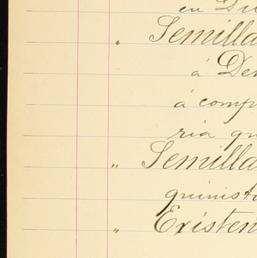 en Du
" Semilla
á De
á comp
ria qu
" Semilla
quinist
" Existen